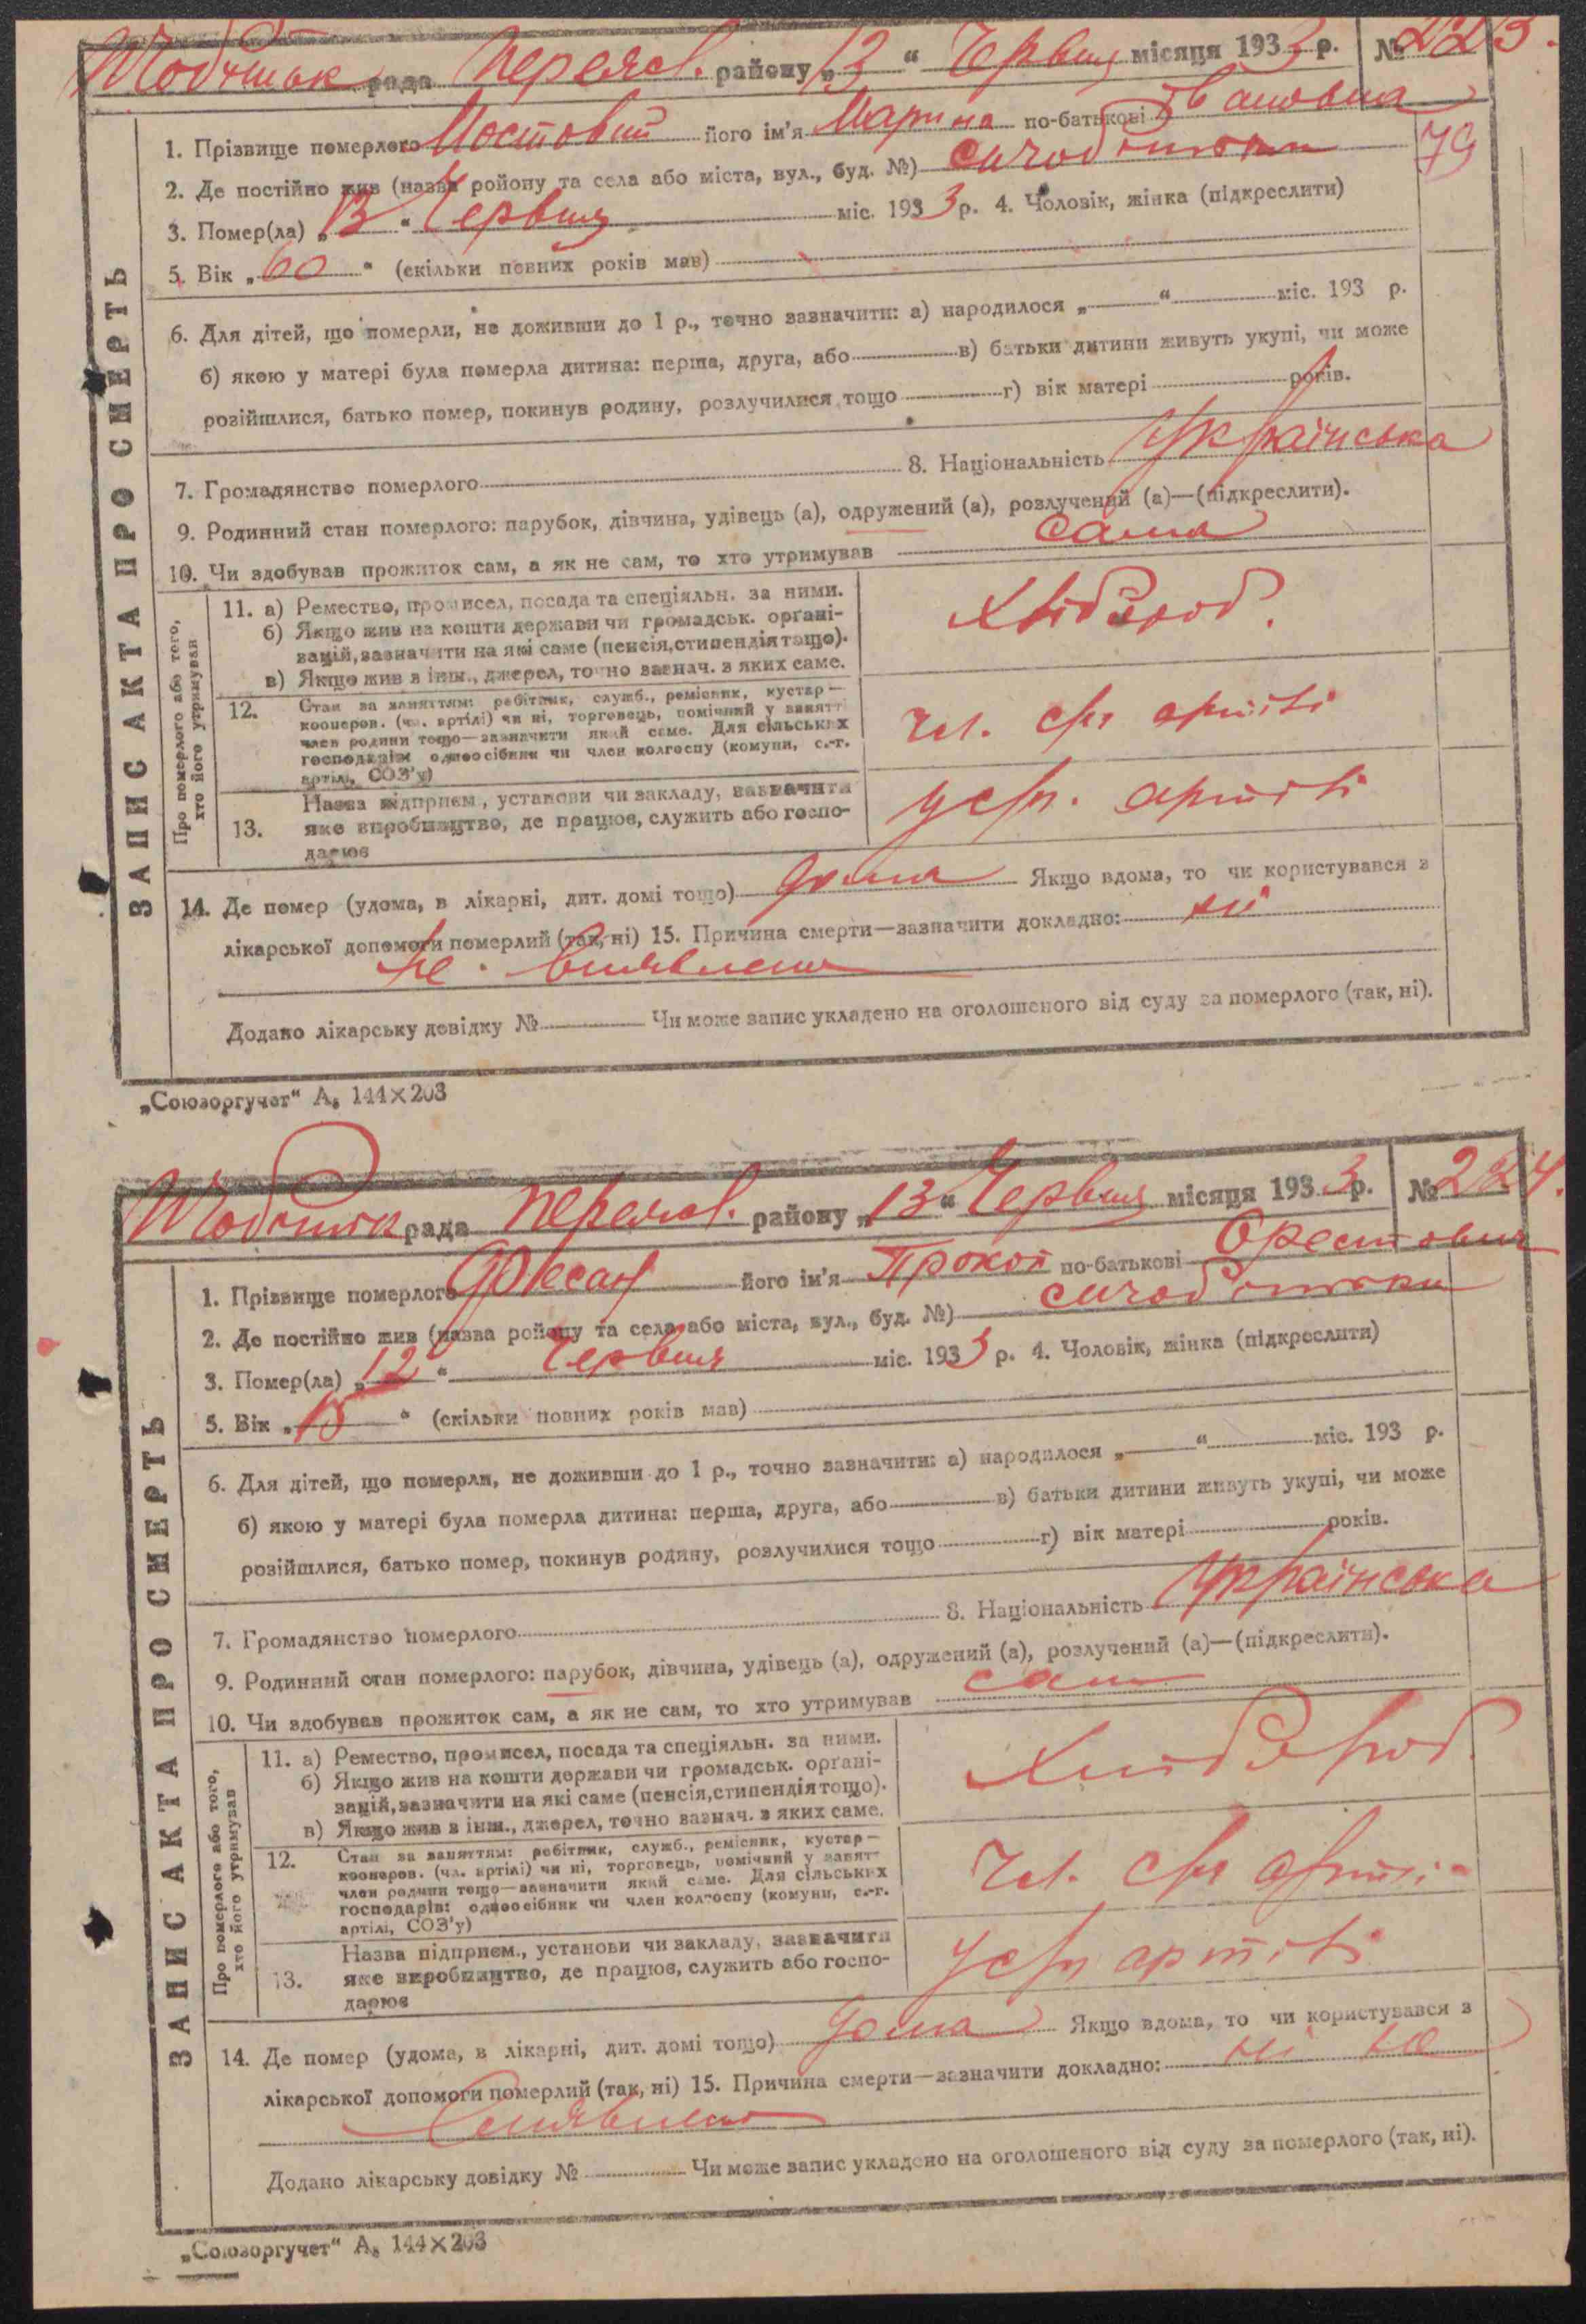 рада Переясл. району „13“ Червня місяця 1933 р. № 223.
79
ЗАПИС АКТА ПРО СМЕРТЬ
1. Прізвище померлого Мостовий його ім'я Марина по-батькові Івановна
2. Де постійно жив (назва району та села або міста, вул., буд. №)
3. Помер(ла) „13“ Червня міс. 1933 р. 4. Чоловік, жінка (підкреслити)
5. Вік „60“ (скільки повних років мав)
6. Для дітей, що померли, не доживши до 1 р., точно зазначити: а) народилося „ “ міс. 193 р.
б) якою у матері була померла дитина: перша, друга, або в) батьки дитини живуть укупі, чи може
розійшлися, батько помер, покинув родину, розлучилися тощо г) вік матері років.
7. Громадянство померлого 8. Національність Українська
9. Родинний стан померлого: парубок, дівчина, удівець (а), одружений (а), розлучений (а)—(підкреслити).
10. Чи здобував прожиток сам, а як не сам, то хто утримував сама
Про померлого або того, хто його утримував
11. а) Ремество, промисел, посада та спеціяльн. за ними.
б) Якщо жив на кошти держави чи громадськ. орґані-
зацій, зазначити на які саме (пенсія, стипендія тощо).
в) Якщо жив з інш., джерел, точно зазнач. з яких саме.
Хлібороб.
12. Стан за заняттям: робітник, служб., ремісник, кустар—
кооперов. (чл. артілі) чи ні, торговець, помічний у занятт
член родини тощо—зазначити який саме. Для сільських
господарів: одноосібник чи член колгоспу (комуни, с.-г.
артілі, СОЗ'у)
чл. с/г артілі
13. Назва підприєм., установи чи закладу, зазначити
яке виробництво, де працює, служить або госпо-
дарює
у с/г. артілі
14. Де помер (удома, в лікарні, дит. домі тощо) дома Якщо вдома, то чи користувався з
лікарської допомоги померлий (так, ні) 15. Причина смерти—зазначити докладно: ні
не виявлена
Додано лікарську довідку № Чи може запис укладено на оголошеного від суду за померлого (так, ні).
„Союзоргучет“ А₅ 144×203
рада Переясл. району „13“ Червня місяця 1933 р. № 224.
ЗАПИС АКТА ПРО СМЕРТЬ
1. Прізвище померлого його ім'я Прокоп по-батькові Орестович
2. Де постійно жив (назва району та села або міста, вул., буд. №)
3. Помер(ла) „12“ Червня міс. 1933 р. 4. Чоловік, жінка (підкреслити)
5. Вік „15“ (скільки повних років мав)
6. Для дітей, що померли, не доживши до 1 р., точно зазначити: а) народилося „ “ міс. 193 р.
б) якою у матері була померла дитина: перша, друга, або в) батьки дитини живуть укупі, чи може
розійшлися, батько помер, покинув родину, розлучилися тощо г) вік матері років.
7. Громадянство померлого 8. Національність Українська
9. Родинний стан померлого: парубок, дівчина, удівець (а), одружений (а), розлучений (а)—(підкреслити).
10. Чи здобував прожиток сам, а як не сам, то хто утримував сам
Про померлого або того, хто його утримував
11. а) Ремество, промисел, посада та спеціяльн. за ними.
б) Якщо жив на кошти держави чи громадськ. орґані-
зацій, зазначити на які саме (пенсія, стипендія тощо).
в) Якщо жив з інш., джерел, точно зазнач. з яких саме.
Хлібороб.
12. Стан за заняттям: робітник, служб., ремісник, кустар—
кооперов. (чл. артілі) чи ні, торговець, помічний у занятт
член родини тощо—зазначити який саме. Для сільських
господарів: одноосібник чи член колгоспу (комуни, с.-г.
артілі, СОЗ'у)
чл. с/г артілі
13. Назва підприєм., установи чи закладу, зазначити
яке виробництво, де працює, служить або госпо-
дарює
у с/г артілі
14. Де помер (удома, в лікарні, дит. домі тощо) дома Якщо вдома, то чи користувався з
лікарської допомоги померлий (так, ні) 15. Причина смерти—зазначити докладно: ні не
виявлено
Додано лікарську довідку № Чи може запис укладено на оголошеного від суду за померлого (так, ні).
„Союзоргучет“ А₅ 144×203